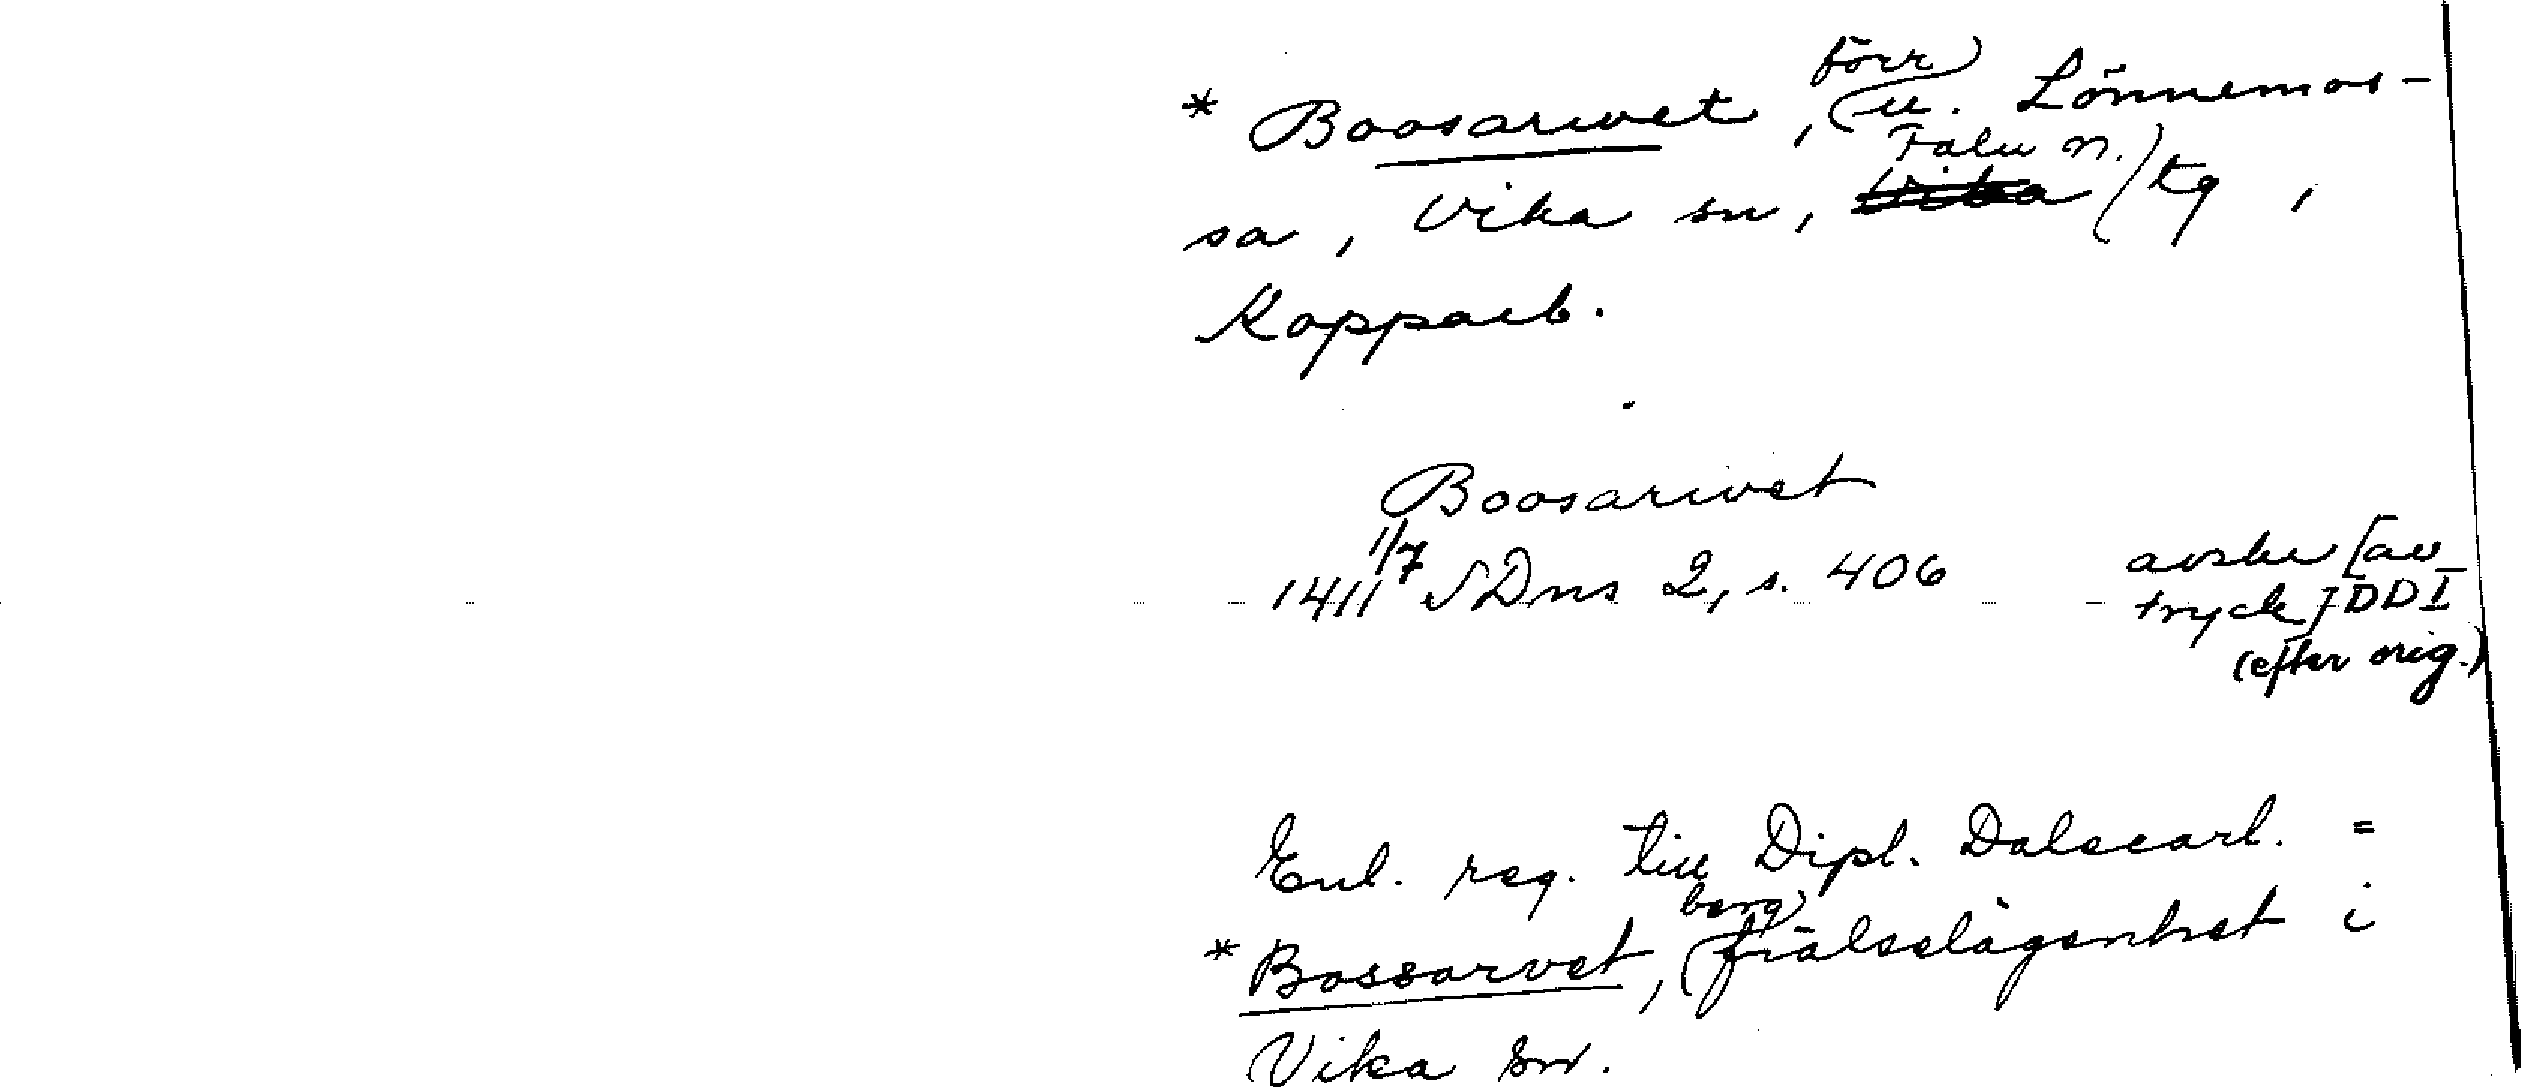 * Boosarwet, förr u. Lönnemos-
sa, Vika sn, Falu n. tg,
Kopparb.
Boosarwet
1411 1/7 SDns 2, s. 406 avskr [av
tryck] DD I
(efter orig.)
Enl. reg. till Dipl. Dalecarl. =
* Bossarvet, bergfrälselägenhet i
Vika sn.